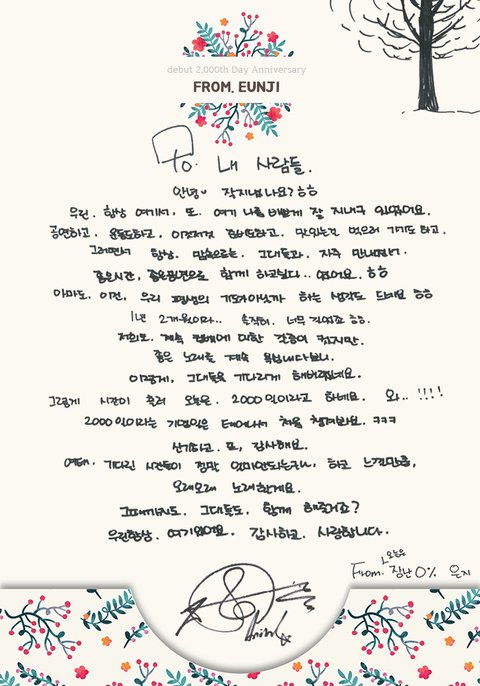 debut 2,000th Day Anniversary
FROM. EUNJI
To. 내 사람들.
안녕 잘지냈나요? ㅎㅎ
우린. 항상 여기서, 또. 여기 나름 바쁘게 잘 지내구 있었어요.
공연하고. 운동도하고, 이것저것 준비도하고. 맛있는것 먹으러 가기도 하고.
그러면서 항상. 마음으로는. 그대들과. 자주 만나왔기.
좋은시간, 좋은컨텐츠로 함께 하고싶다.. 였어요. ㅎㅎ
아마도. 이건, 우리 평생의 기도가아닐까 하는 생각도 드네요 ㅎㅎ
1년 2개월이라.. 솔직히. 너무 길었죠 ㅎㅎ.
저희도. 계속 컴백에 대한 갈증이 컸지만.
좋은 노래를 계속 욕심내다보니.
이렇게, 그대들을 기다리게 해버렸네요.
그렇게 시간이 흘러 오늘은. 2000일이라고 하네요. 와.. !!!!
2000일이라는 기념일은 태어나서 처음 챙겨봐요. ㅋㅋㅋ
신기하고. 또, 감사해요.
여태. 기다린 시간들이 정말 얼마안되는구나. 하고 느낄만큼,
오래오래 노래할게요.
그때까지도. 그대들도. 함께 해줄거죠?
우린항상. 여기있어요. 감사하고. 사랑합니다.
오늘은
From. 집난0% 은지